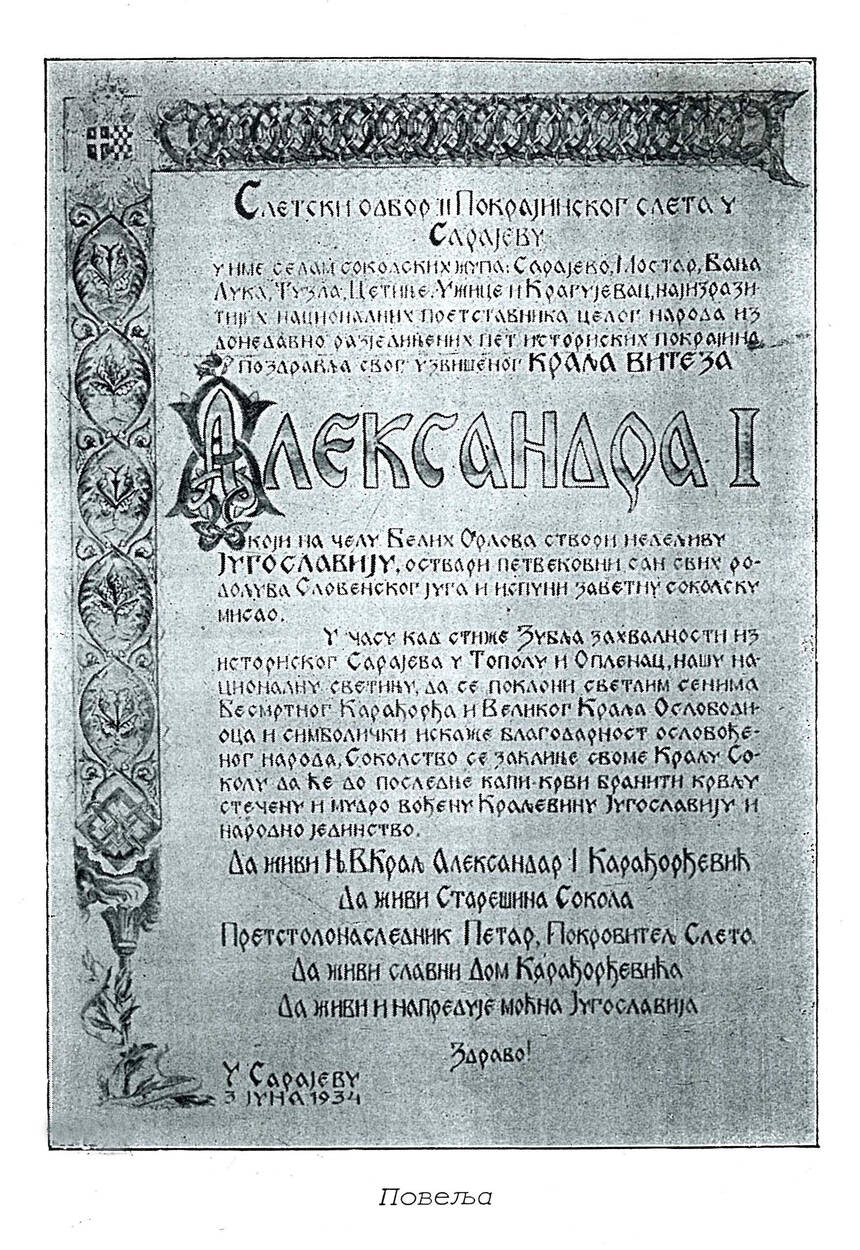 Слетски одбор II Покрајинског слета у
Сарајеву
у име седам соколских жупа: Сарајево, Мостар, Бања
Лука, Тузла, Цетиње, Ужице и Крагујевац, најизрази-
тијих националних претставника целог народа из
донедавно разједињених пет историских покрајина,
поздравља свог узвишеног КРАЉА ВИТЕЗА
АЛЕКСАНДРА I
који на челу Белих Орлова створи недељиву
ЈУГОСЛАВИЈУ, оствари петвековни сан свих ро-
дољуба Словенског југа и испуни заветну соколску
мисао.
У часу кад стиже Зубља захвалности из
историског Сарајева у Тополу и Опленац, нашу на-
ционалну светињу, да се поклони светлим сенима
Бесмртног Карађорђа и Великог Краља Ослободи-
оца и симболички искаже благодарност ослобође-
ног народа, Соколство се заклиње своме Краљу Со-
колу да ће до последње капи крви бранити крвљу
стечену и мудро вођену Краљевину Југославију и
народно јединство.
Да живи Њ.В.Краљ Александар I Карађорђевић
Да живи Старешина Сокола
Претстолонаследник Петар, Покровитељ Слета
Да живи славни Дом Карађорђевића
Да живи и напредује моћна Југославија
Здраво!
У Сарајеву
3 јуна 1934
Повеља